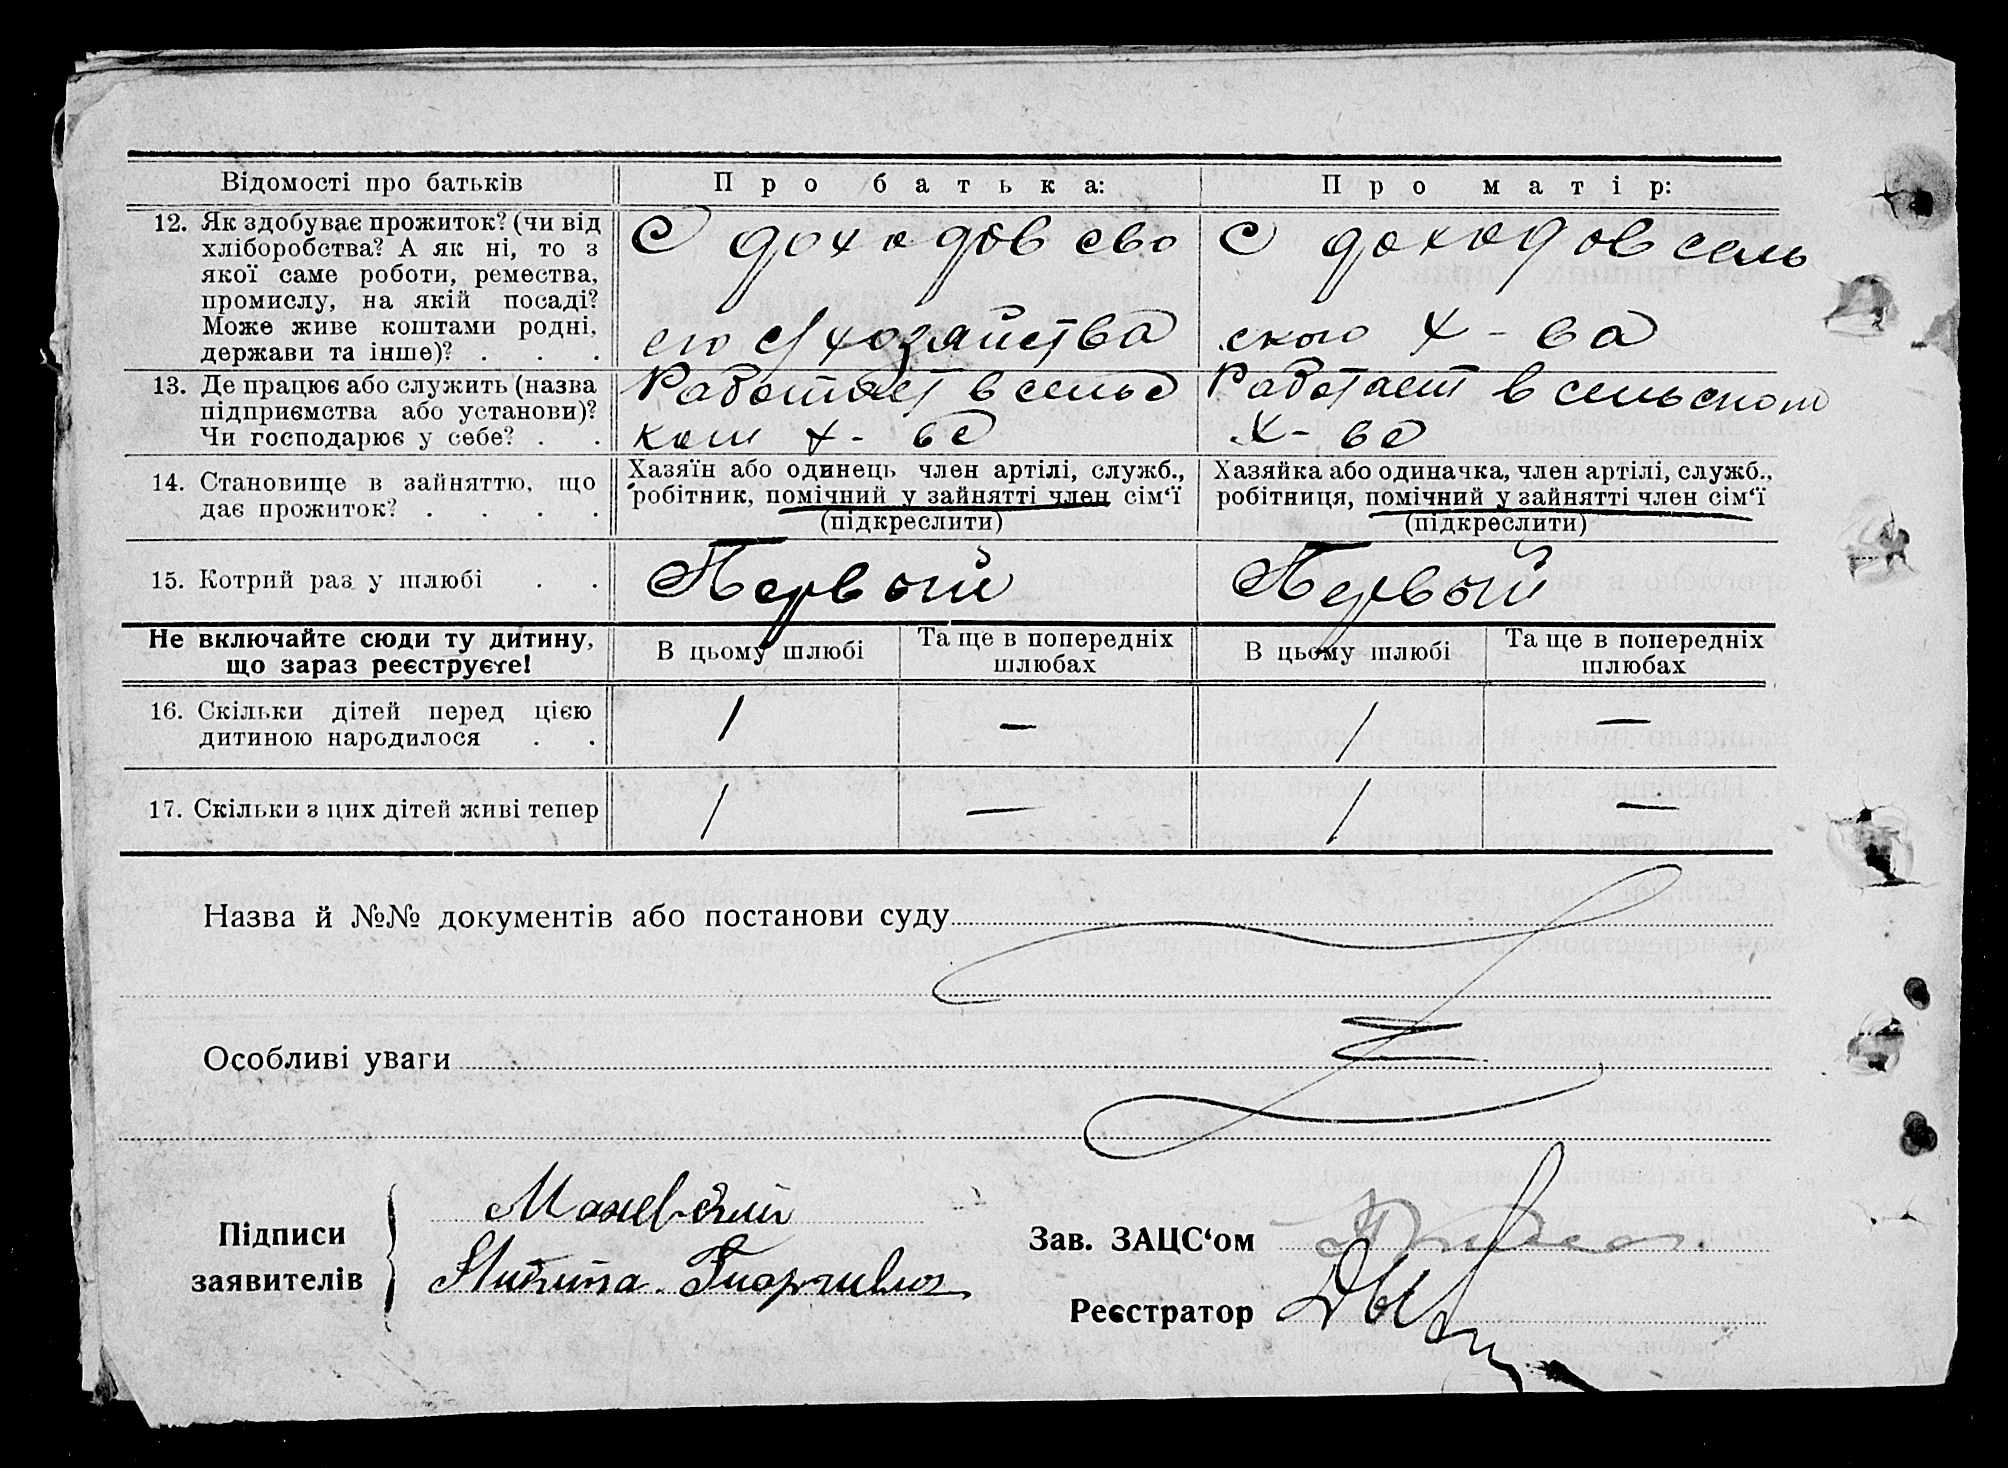 Відомості про батьків
Про батька:
Про матір:
12. Як здобуває прожиток? (чи від
хліборобства? А як ні, то з
якої саме роботи, ремества,
промислу, на якій посаді?
Може живе коштами родні,
держави та інше)? . . .
С доходов сво
его с/хозяйства
С доходов сель
ского х-ва
13. Де працює або служить (назва
підприємства або установи)?
Чи господарює у себе? . .
Работает в сельс
ком х-ве
Работает в сельском
х-ве
14. Становище в зайняттю, що
дає прожиток? . . . .
Хазяїн або одинець член артілі, служб.,
робітник, помічний у зайнятті член сім'ї
(підкреслити)
Хазяйка або одиначка, член артілі, служб.,
робітниця, помічний у зайнятті член сім'ї
(підкреслити)
15. Котрий раз у шлюбі . .
Первый
Первый
Не включайте сюди ту дитину,
що зараз реєструєте!
В цьому шлюбі
Та ще в попередніх
шлюбах
В цьому шлюбі
Та ще в попередніх
шлюбах
16. Скільки дітей перед цією
дитиною народилося . .
1
—
1
—
17. Скільки з цих дітей живі тепер
1
—
1
—
Назва й №№ документів або постанови суду
Особливі уваги
Підписи
заявителів
Никита
Зав. ЗАЦС'ом
Реєстратор